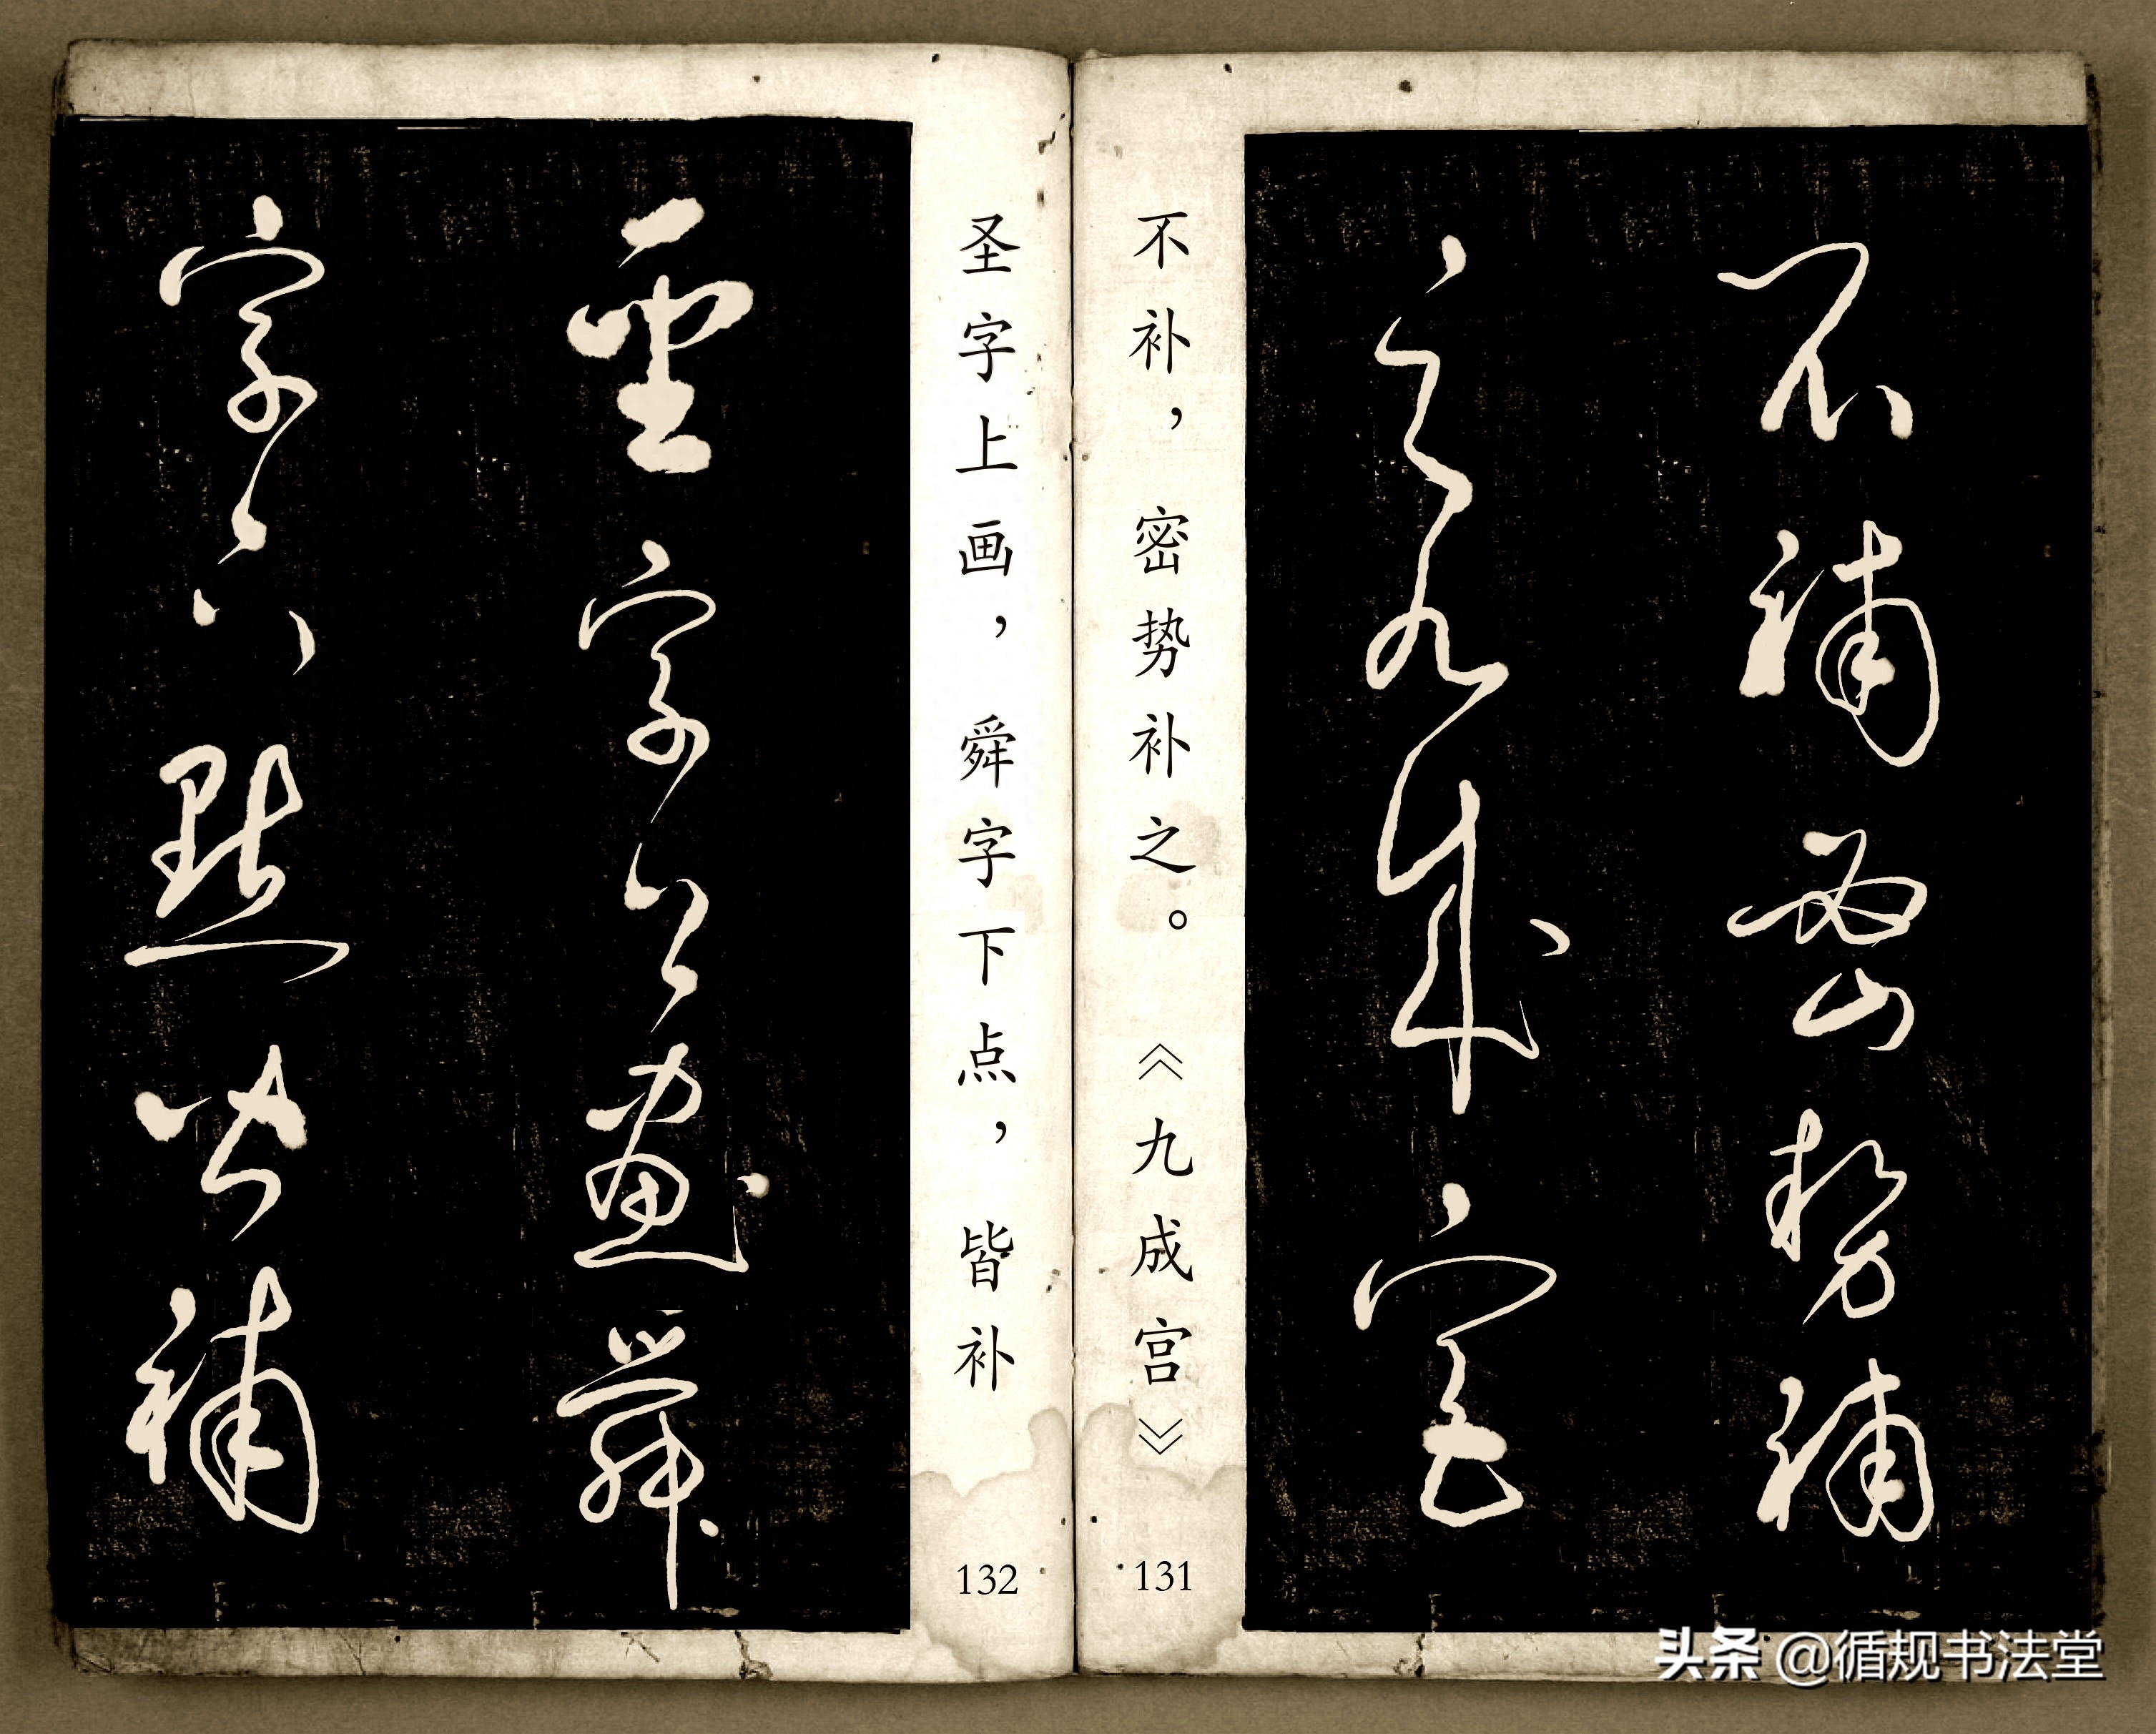 不補密勢補
之九成宮
不补，密势补之。《九成宫》
131
圣字上画，舜字下点，皆补
132
聖字上畫舜
字下點皆補
头条 @循规书法堂